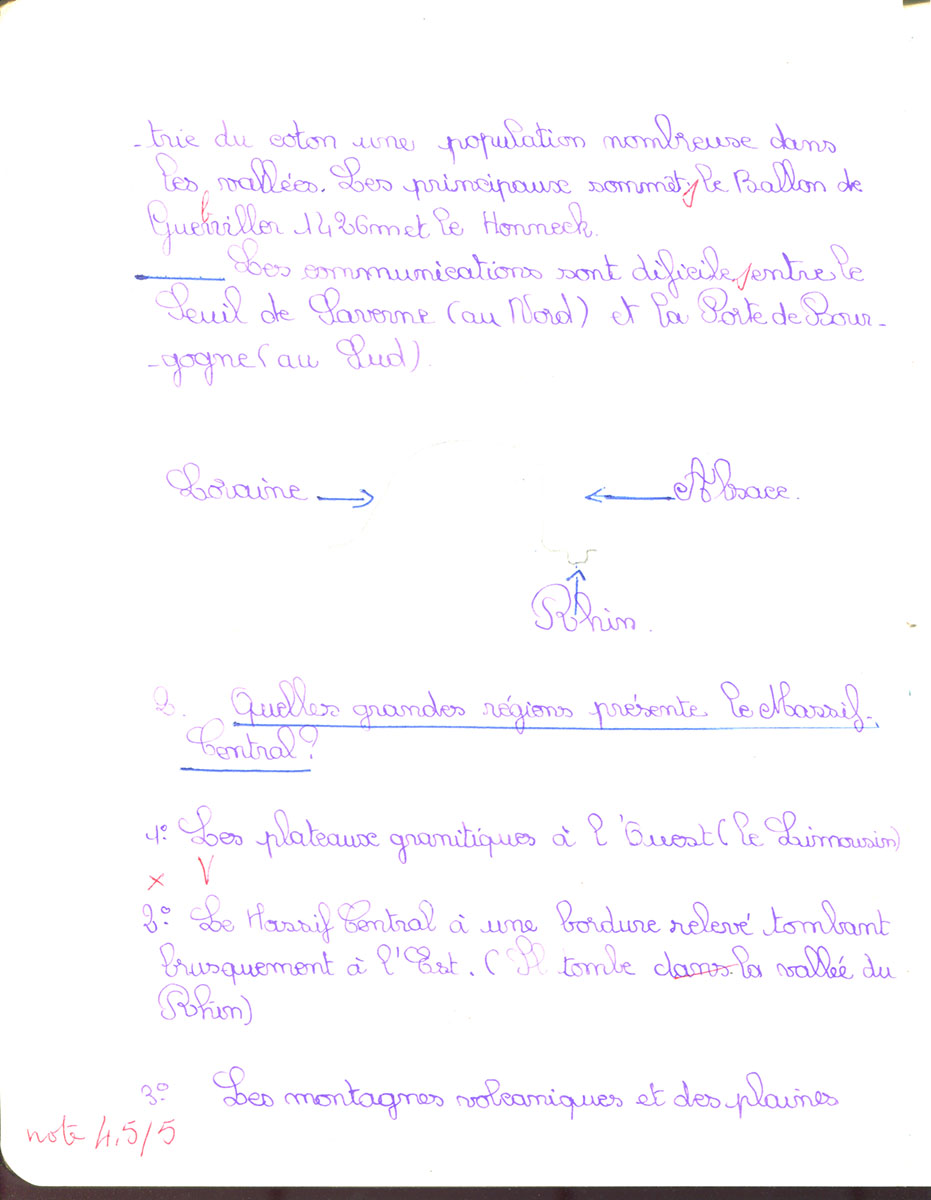 -trie du coton une population nombreuse dans
les vallées. Les principaux sommet, le Ballon de
Guebviller 1426m et le Honneck.
Les communications sont dificile, entre le
Seuil de Saverne (au Nord) et la Porte de Bour-
-gogne (au Sud).
Loraine → ← Alsace.
Rhin.
2. Quelles grandes régions présente le Massif-
Central?
1° Les plateaux granitiques à l'Ouest (le Limousin)
x V
2° Le Massif Central à une bordure relevé tombant
brusquement à l'Est. (Il tombe dans la vallée du
Rhin)
3° Les montagnes volcaniques et des plaines
note 4,5/5